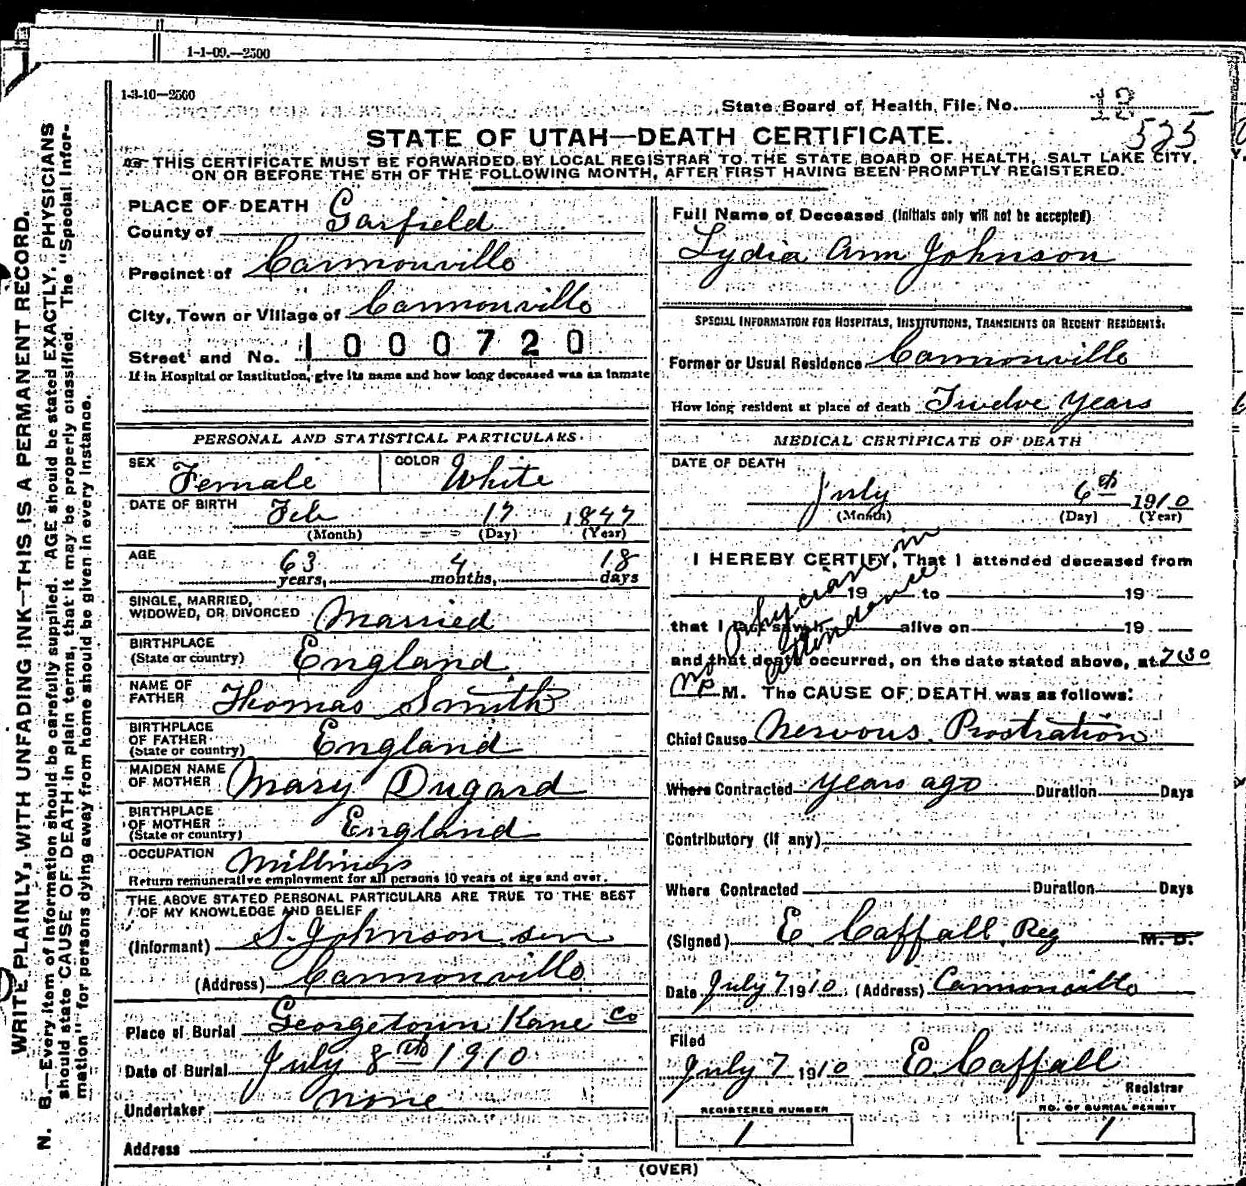 1-1-09.—2500
1-3-10—2500
State Board of Health, File No. 13
525
STATE OF UTAH—DEATH CERTIFICATE.
THIS CERTIFICATE MUST BE FORWARDED BY LOCAL REGISTRAR TO THE STATE BOARD OF HEALTH, SALT LAKE CITY,
ON OR BEFORE THE 5TH OF THE FOLLOWING MONTH, AFTER FIRST HAVING BEEN PROMPTLY REGISTERED.
WRITE PLAINLY, WITH UNFADING INK—THIS IS A PERMANENT RECORD.
N. B.—Every item of information should be carefully supplied. AGE should be stated EXACTLY. PHYSICIANS
should state CAUSE OF DEATH in plain terms, that it may be properly classified. The "Special Infor-
mation" for persons dying away from home should be given in every instance.
PLACE OF DEATH
County of Garfield
Precinct of Cannonville
City, Town or Village of Cannonville
Street and No. 1000720
If in Hospital or Institution, give its name and how long deceased was an inmate
PERSONAL AND STATISTICAL PARTICULARS.
SEX Female COLOR White
DATE OF BIRTH Feb 17 1847
(Month) (Day) (Year)
AGE 63 years, 4 months, 18 days
SINGLE, MARRIED,
WIDOWED, OR DIVORCED Married
BIRTHPLACE
(State or country) England
NAME OF
FATHER Thomas Smith
BIRTHPLACE
OF FATHER
(State or country) England
MAIDEN NAME
OF MOTHER Mary Dugard
BIRTHPLACE
OF MOTHER
(State or country) England
OCCUPATION Milliner
Return remunerative employment for all persons 10 years of age and over.
THE ABOVE STATED PERSONAL PARTICULARS ARE TRUE TO THE BEST
OF MY KNOWLEDGE AND BELIEF
(Informant) S. Johnson sen
(Address) Cannonville
Place of Burial Georgetown Kane Co
Date of Burial July 8th 1910
Undertaker None
Address
Full Name of Deceased (Initials only will not be accepted)
Lydia Ann Johnson
SPECIAL INFORMATION FOR HOSPITALS, INSTITUTIONS, TRANSIENTS OR RECENT RESIDENTS:
Former or Usual Residence Cannonville
How long resident at place of death Twelve Years
MEDICAL CERTIFICATE OF DEATH
DATE OF DEATH
July 6th 1910
(Month) (Day) (Year)
I HEREBY CERTIFY, That I attended deceased from
19 to 19
that I last saw h alive on 19
No Physician in attendance
and that death occurred, on the date stated above, at 7:30
P M. The CAUSE OF DEATH was as follows:
Chief Cause Nervous Prostration
Where Contracted years ago Duration Days
Contributory (if any)
Where Contracted Duration Days
(Signed) E. Caffall, Reg M. D.
Date July 7 1910 (Address) Cannonville
Filed
July 7 1910 E Caffall
Registrar
REGISTERED NUMBER
1
NO. OF BURIAL PERMIT
1
(OVER)